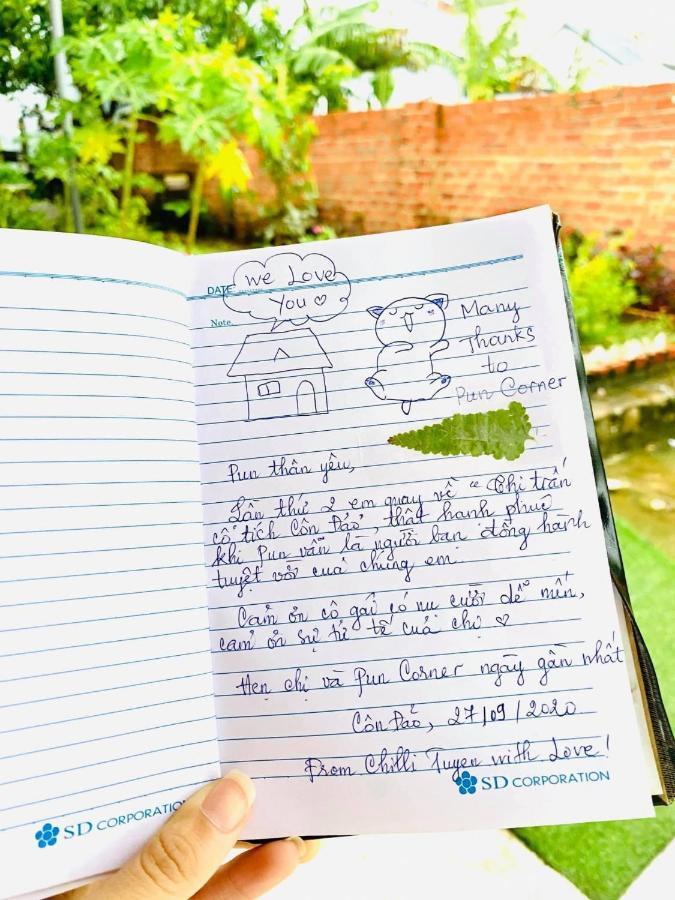 We Love
You ♡
DATE
Note
Many
Thanks
to
Pun Corner
Pun thân yêu,
Lần thứ 2 em quay về "Thị trấn
cổ tích Côn Đảo", thật hạnh phúc
khi Pun vẫn là người bạn đồng hành
tuyệt vời của chúng em.
Cảm ơn cô gái có nụ cười dễ mến,
cảm ơn sự tử tế của chị ♡
Hẹn chị và Pun Corner ngày gần nhất
Côn Đảo, 27/09/2020
From Chilli Tuyen with Love!
SD CORPORATION
SD CORPORATIO